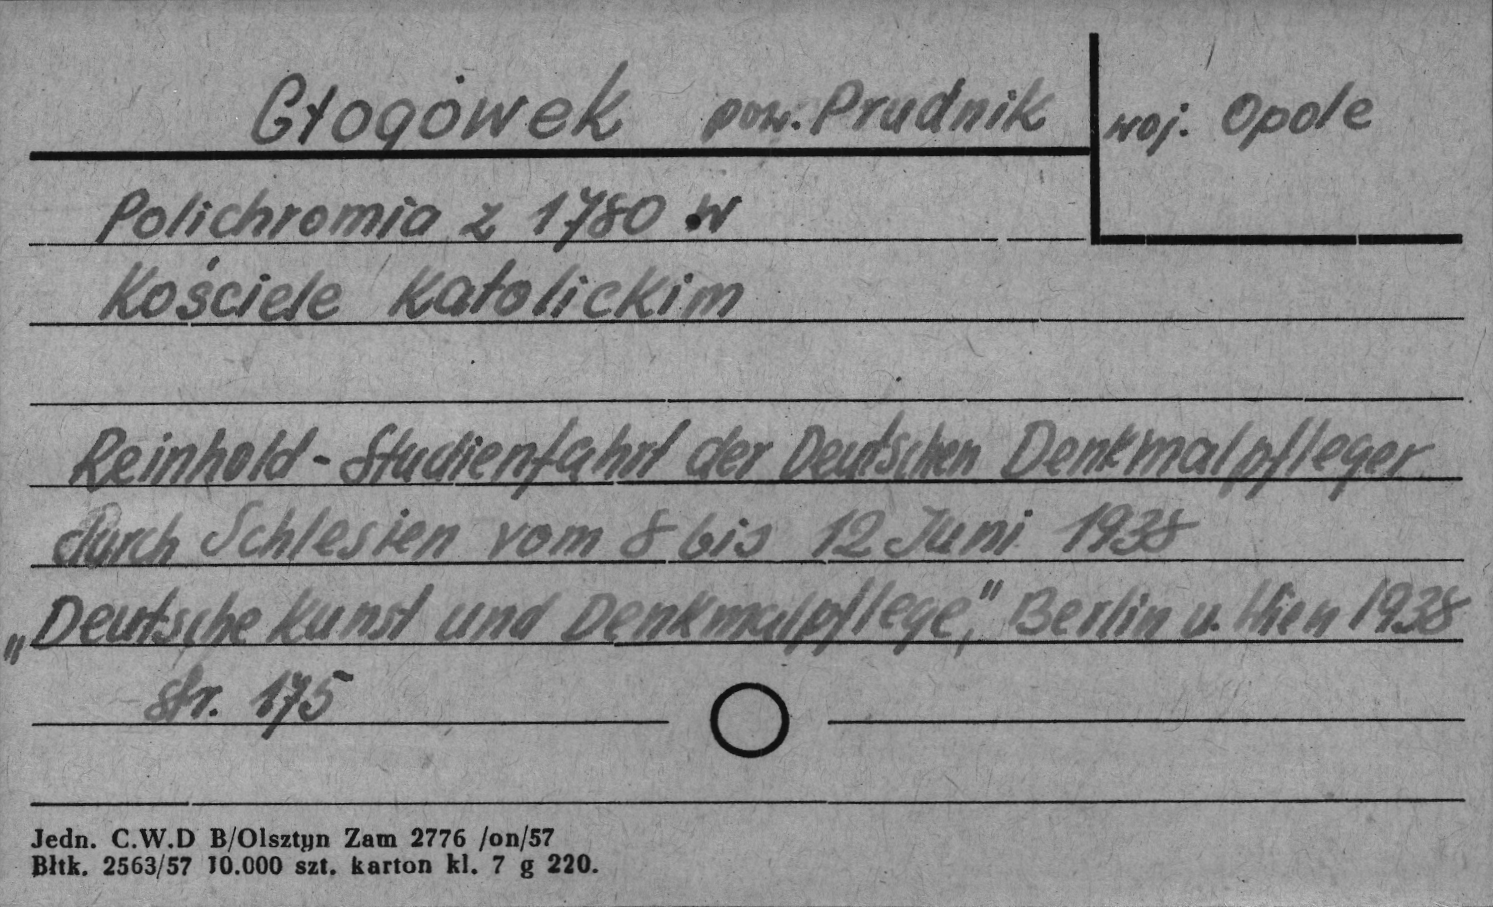 Głogówek pow. Prudnik woj. Opole
Polichromia z 1780 w
Kościele Katolickim
Reinhold - Studienfahrt der Deutschen Denkmalpfleger
durch Schlesien vom 8 bis 12 Juni 1938
„Deutsche Kunst und Denkmalpflege," Berlin u. Wien 1938
str. 175
Jedn. C.W.D B/Olsztyn Zam 2776 /on/57
Błtk. 2563/57 10.000 szt. karton kl. 7 g 220.